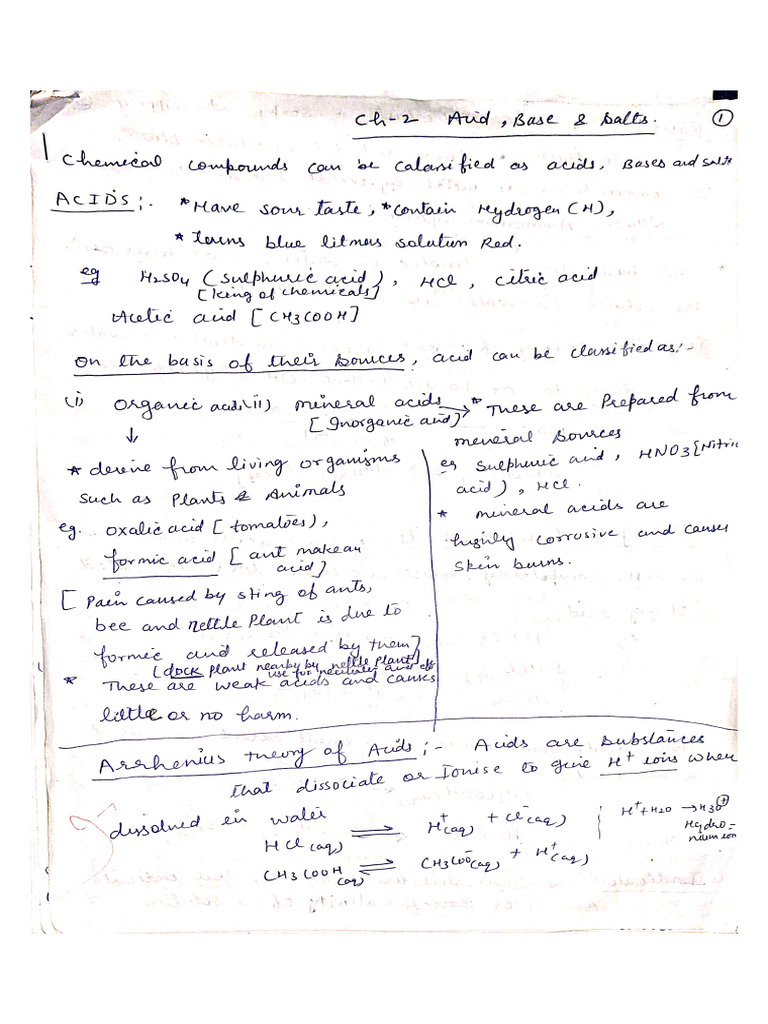 Ch-2 Acid, Base & Salts. ①
Chemical compounds can be calassified as acids, Bases and Salts
ACIDS:- *Have sour taste, *contain Hydrogen (H),
* Turns blue litmus solution Red.
eg H2SO4 (Sulphuric acid), HCl, Citric acid
[King of chemicals]
Acetic acid [CH3COOH]
On the basis of their Sources, acid can be classified as:-
(i) Organic acids (ii) mineral acids → * These are Prepared from
[Inorganic acid]
mineral Sources
eg Sulphuric acid, HNO3 [Nitric
acid), HCl.
* mineral acids are
highly corrosive and causes
Skin burns.
↓
* derive from living organisms
such as Plants & Animals
eg. Oxalic acid [tomatoes),
formic acid [ant
acid]
[Pain caused by sting of ants,
bee and nettle Plant is due to
formic acid released by them]
[dock plant nearby by nettle plant]
use for neutralise acid eff
* These are weak acids and causes
little or no harm.
Arrhenius theory of Acids:- Acids are Substances
that dissociate or Ionise to give H+ ions when
dissolved in water
HCl(aq) ⇌ H+(aq) + Cl-(aq)
H+ + H2O → H3O+
Hydro=
nium ion
CH3COOH(aq) ⇌ CH3COO-(aq) + H+(aq)